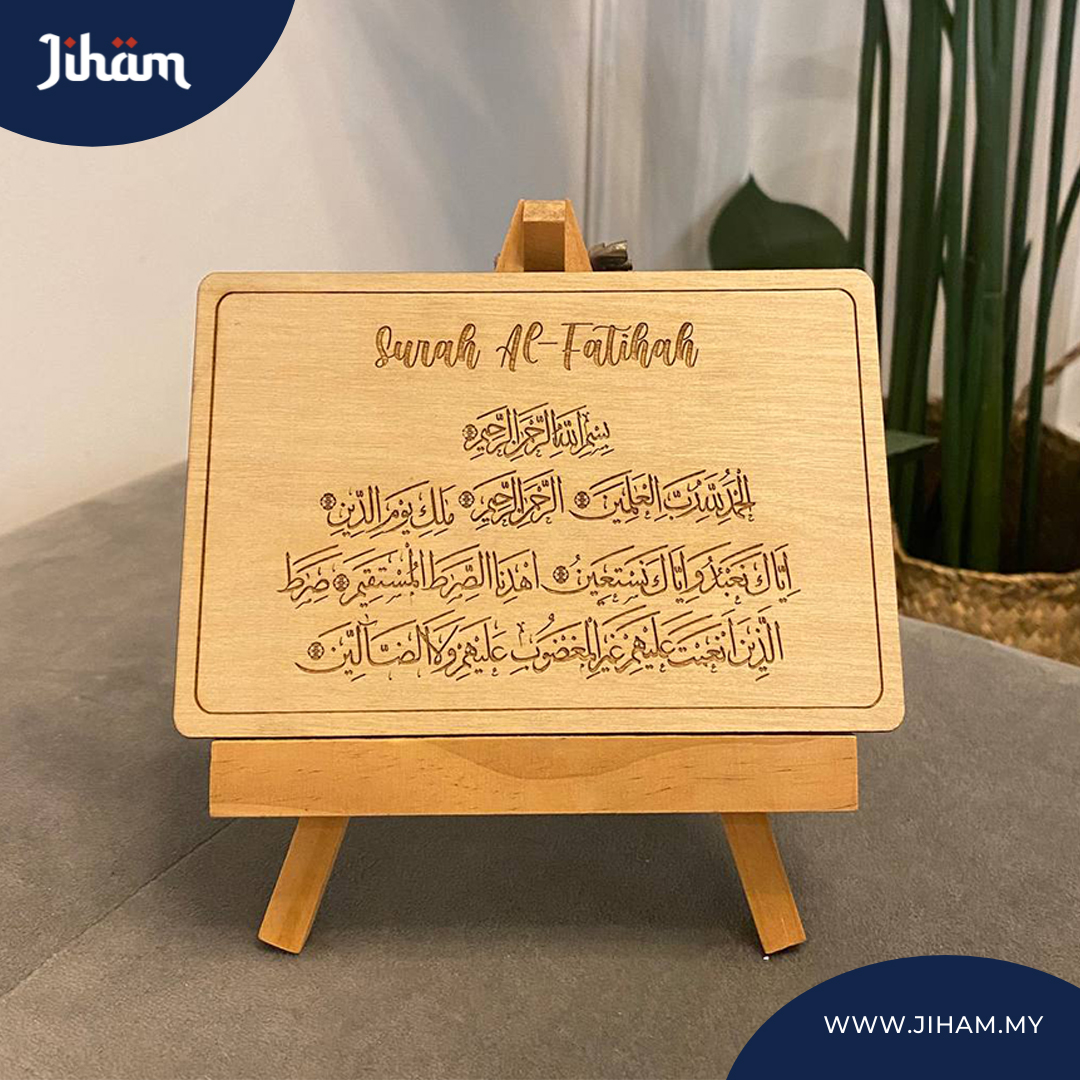 Jihäm
Surah Al-Fatihah
بِسْمِ اللّٰهِ الرَّحْمٰنِ الرَّحِيْمِ
اَلْحَمْدُ لِلّٰهِ رَبِّ الْعٰلَمِيْنَ الرَّحْمٰنِ الرَّحِيْمِ مٰلِكِ يَوْمِ الدِّيْنِ
اِيَّاكَ نَعْبُدُ وَاِيَّاكَ نَسْتَعِيْنُ اِهْدِنَا الصِّرَاطَ الْمُسْتَقِيْمَ صِرَاطَ
الَّذِيْنَ اَنْعَمْتَ عَلَيْهِمْ غَيْرِ الْمَغْضُوْبِ عَلَيْهِمْ وَلَا الضَّآلِّيْنَ
WWW.JIHAM.MY